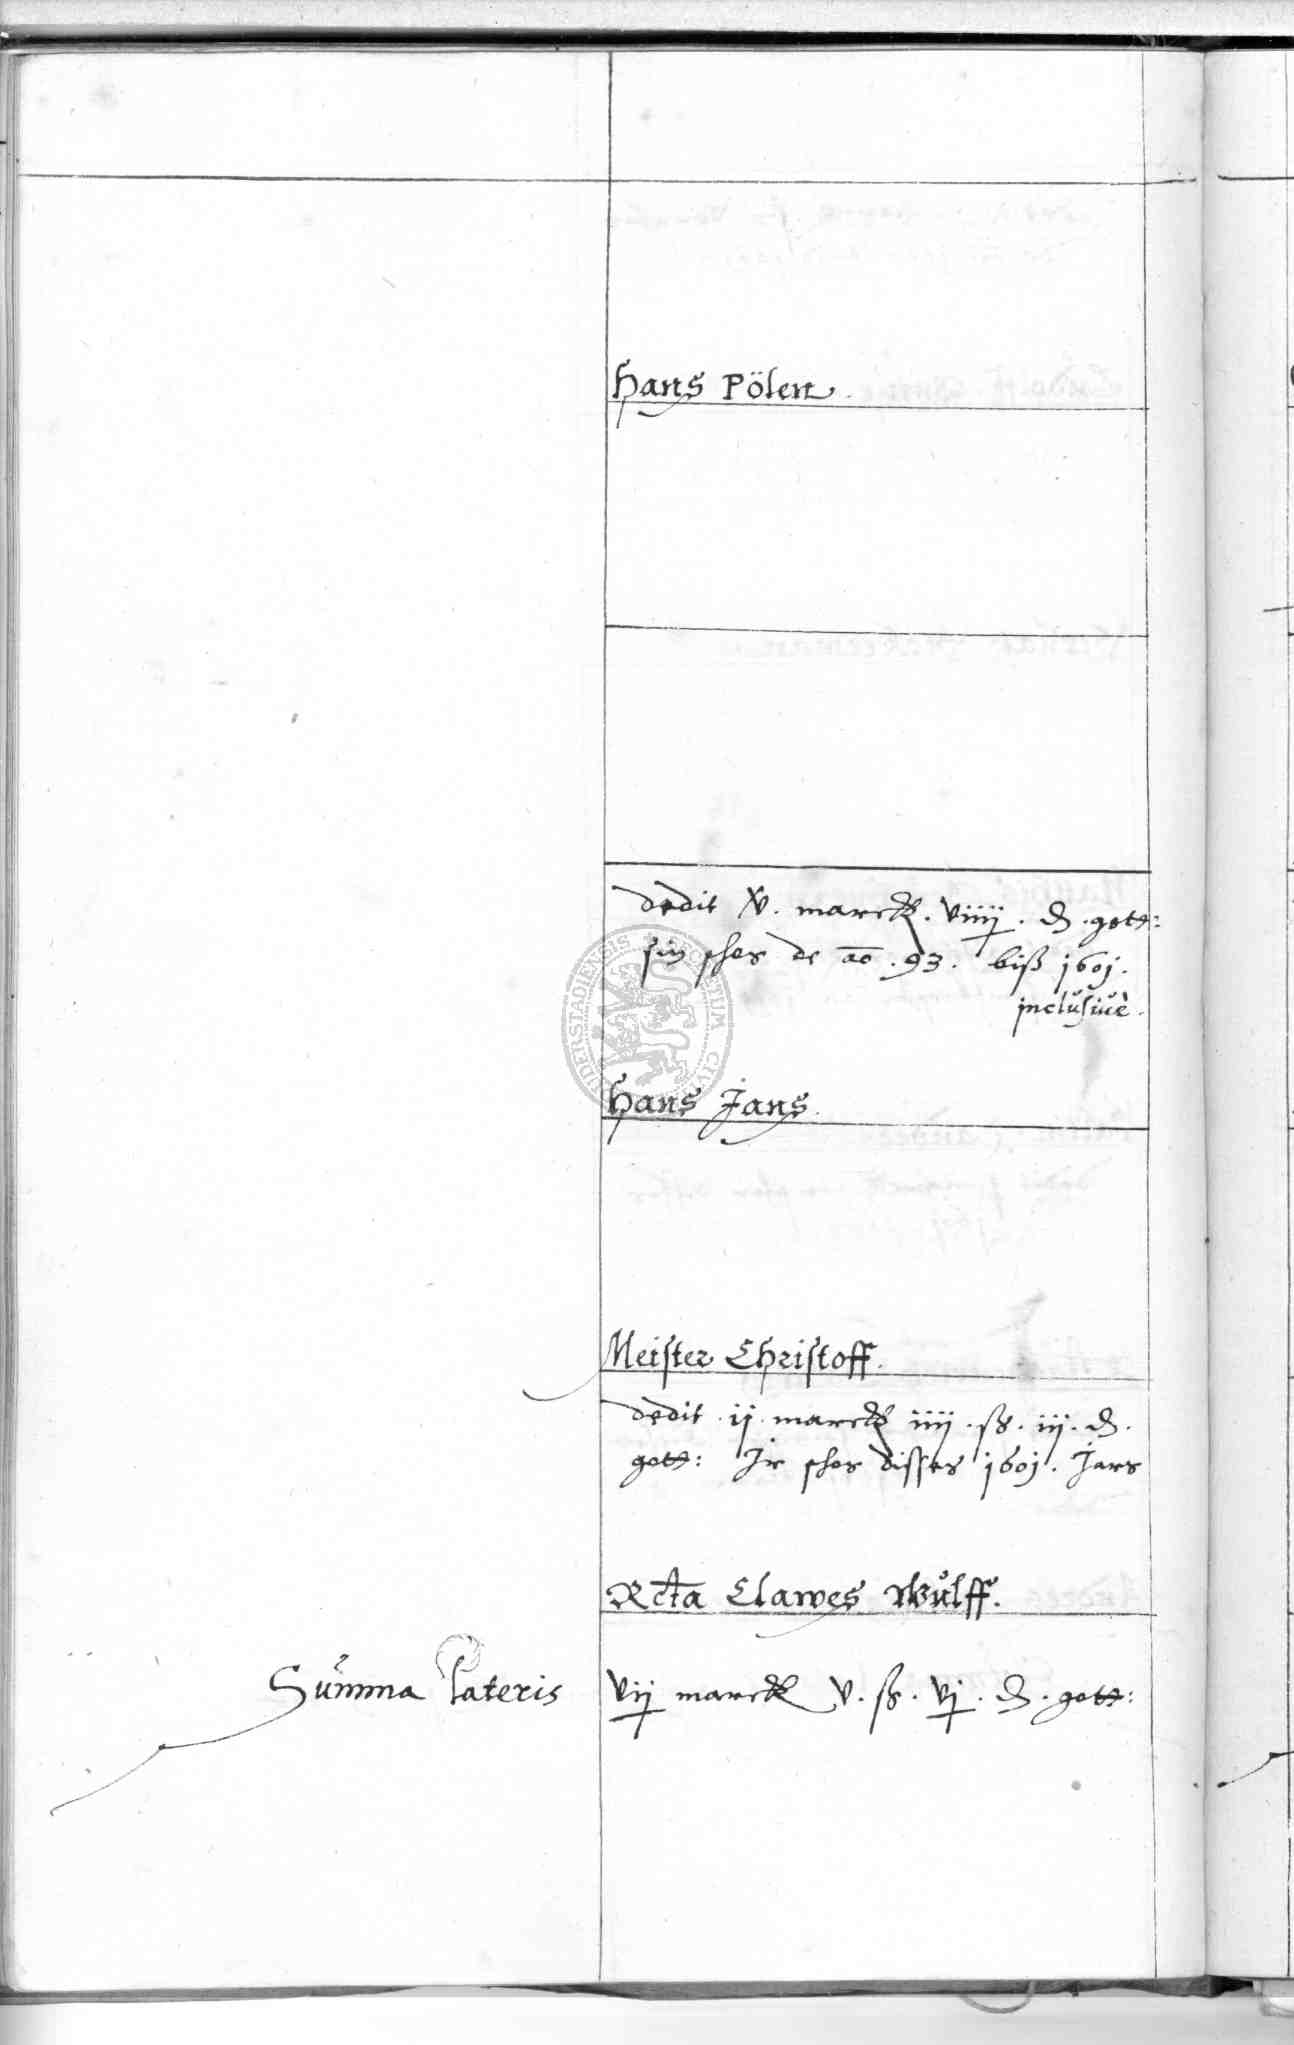 Hans Pölen.
dedit v. marck. viiij. ₰. gott:
sin schos de ao .93. biß 1601.
inclusiue.
Hans Jans.
Meister Christoff.
dedit ij marck iiij . ß. iij. ₰.
gott: Ir schos disses 1601. Jars
Rcta Clawes Wulff.
Summa lateris vij marck v. ß. vj. ₰. gott:
SECRETUM CIV
DERSTADIENSIS